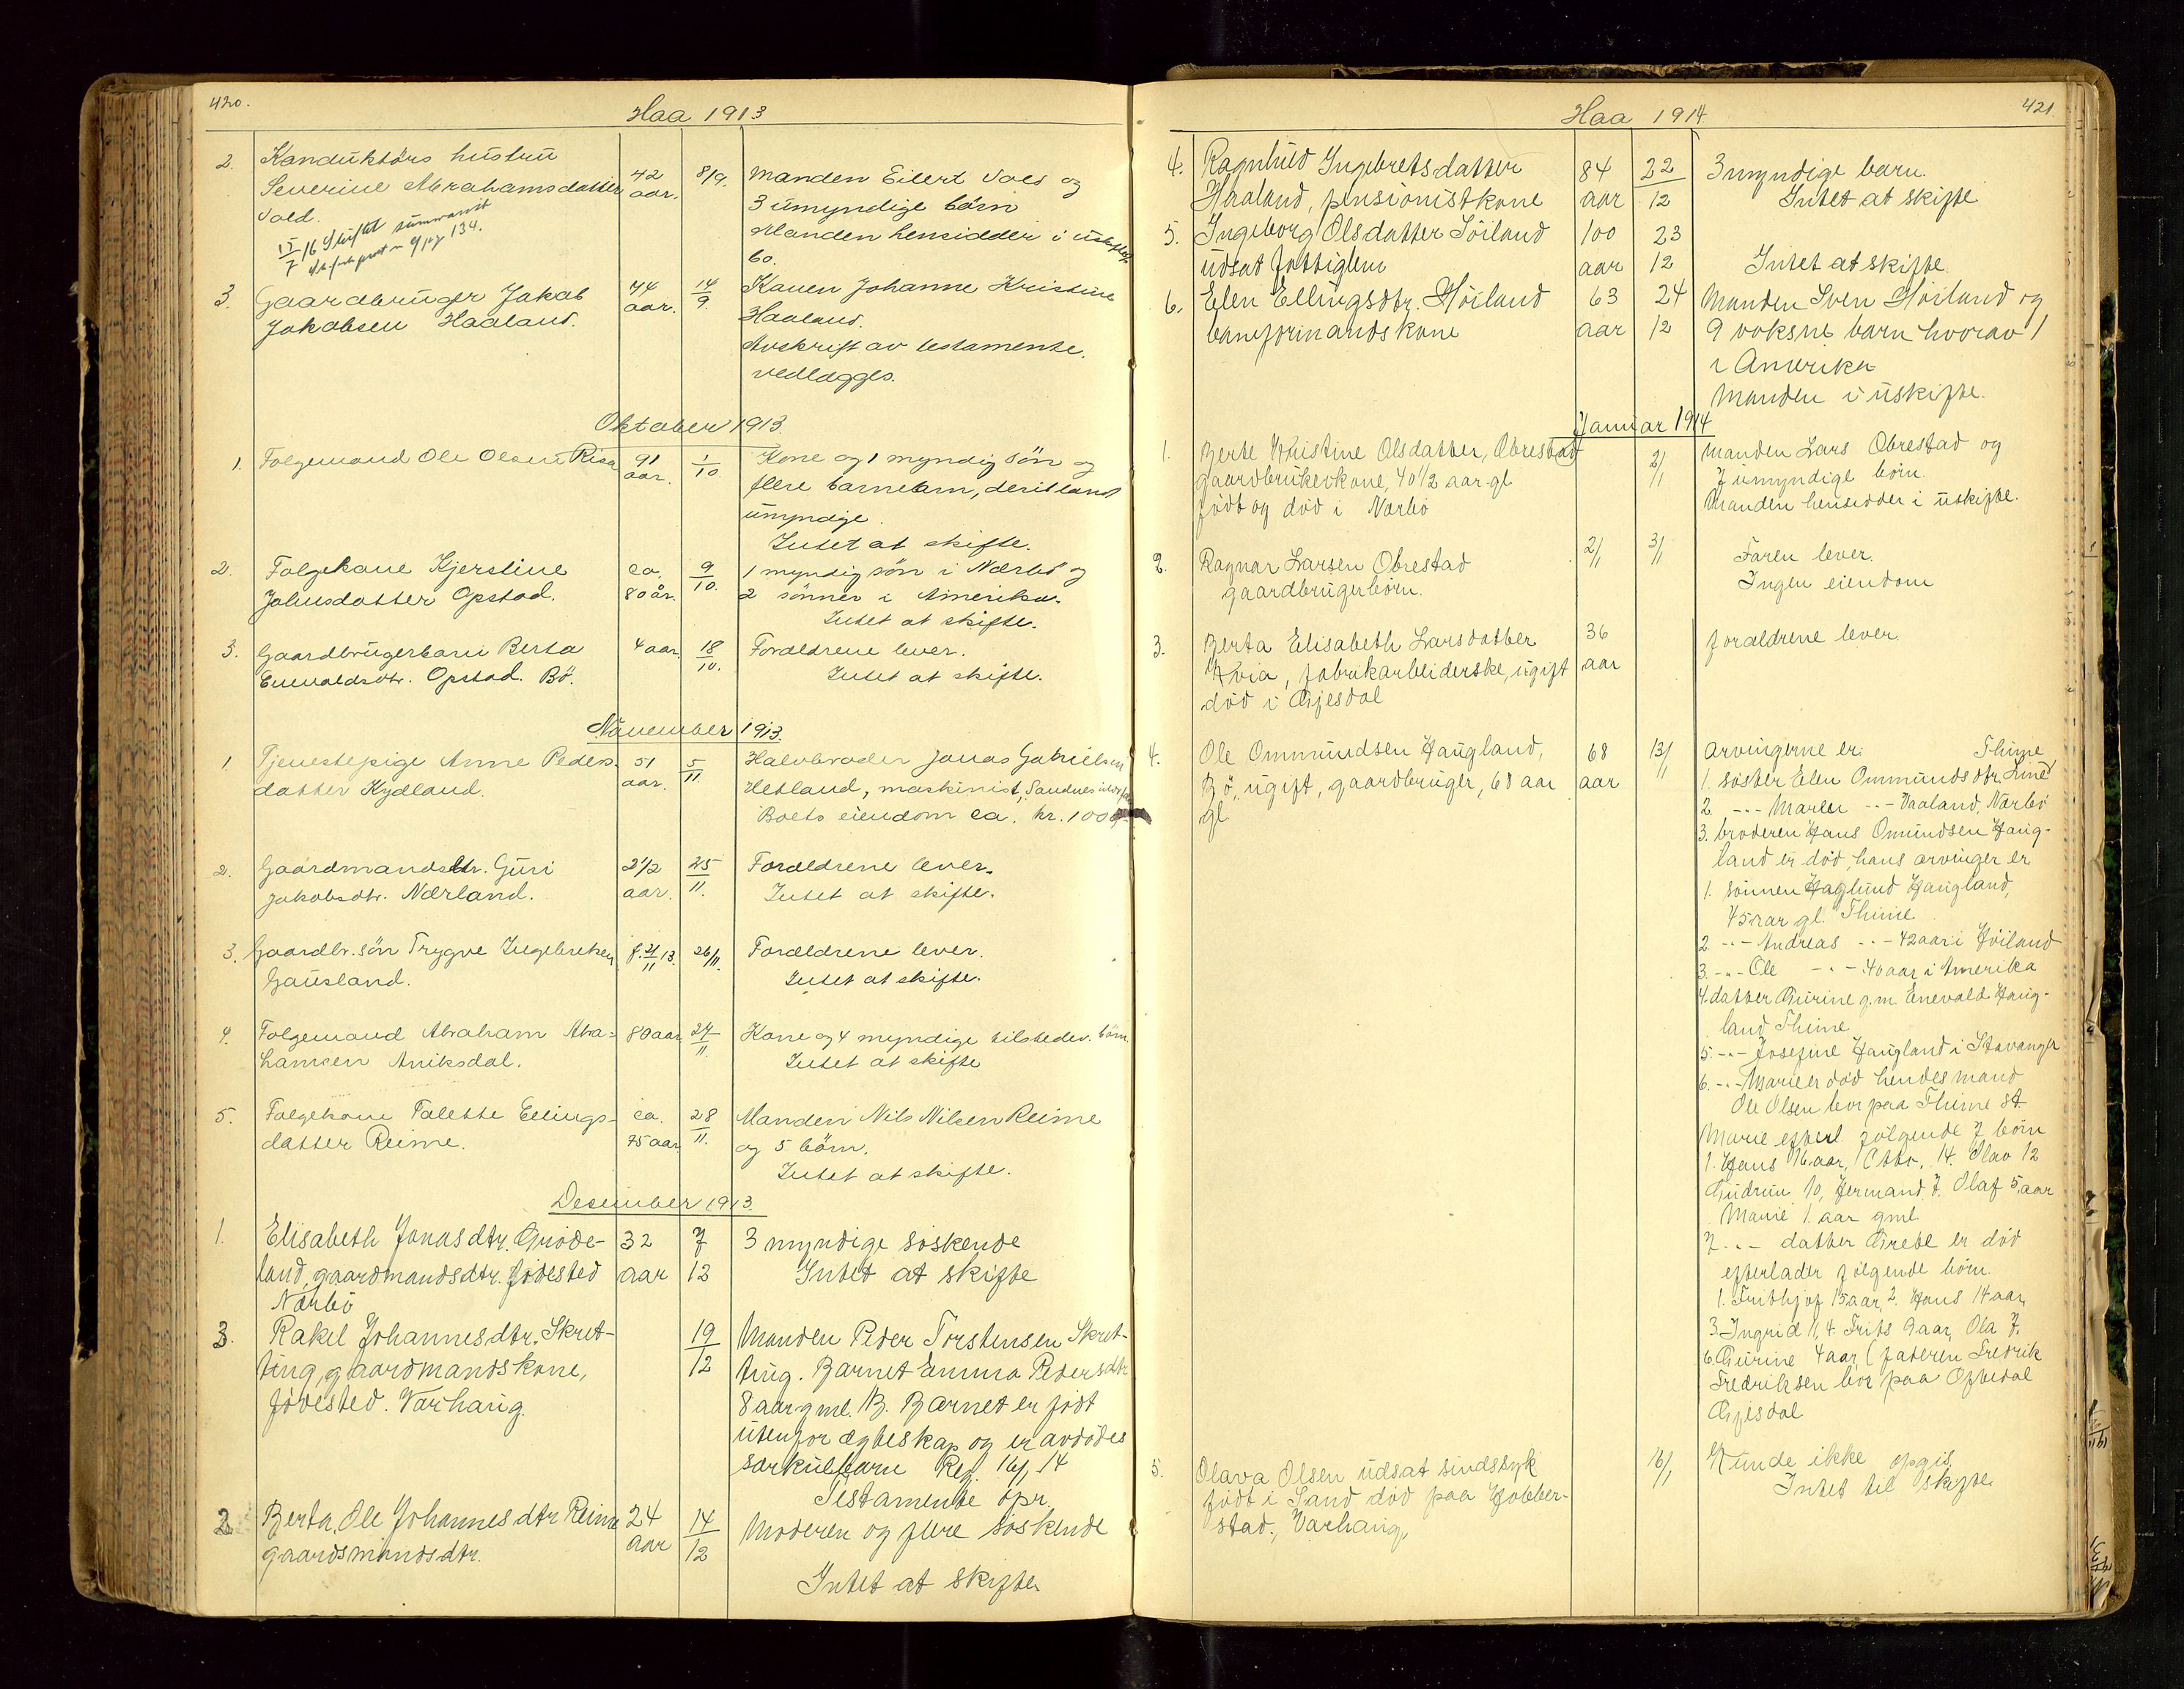 420.
Haa 1913
2. Kanduktörs hustru 42 8/9. Manden Eilert Vold og
Severine Abrahamsdatter aar. 3 umyndige börn
Vold. Manden hensidder i uskiftet
bo.
15/7 16 Skiftet summarisk
134.
3. Gaardbruger Jakob 44 14/9. Konen Johanne Kristine
Jakobsen Haaland. aar. Haaland.
Avskrift av testamente
vedlægges.
Oktober 1913.
1. Folgemand Ole Olsen Risa 91 1/10. Kone og 1 myndig sön og
aar. flere barnebarn, deriblandt
umyndige.
Intet at skifte.
2. Folgekone Kjerstine ca. 9/10. 1 myndig sön i Nærbö og
Johnsdatter Opstad. 80 år. 2 sönner i Amerika.
Intet at skifte.
3. Gaardbrugerbarn Berta 4 aar. 18/10. Forældrene lever.
Enevaldsdtr. Opstad. Bö. Intet at skifte.
November 1913.
1. Tjenestepige Anne Peders- 51 5/11. Halvbroder Jonas Gabrielsen
datter Kydland. aar. Hetland, maskinist, Sandnes
Boets eiendom ca. kr. 1000
2. Gaardmandsdtr. Guri 2 1/2 25/11. Forældrene lever.
Jakobsdtr. Nærland. aar. Intet at skifte.
3. Gaardbr. sön Trygve Ingebretsen f. 21/11 13. 26/11. Forældrene lever.
Gausland. Intet at skifte.
4. Folgemand Abraham Abra- 80 aar 27/11. Kone og 4 myndige tilstedev. börn
hamsen Aniksdal. Intet at skifte
5. Folgekone Talette Ellings- ca. 28/11. Manden Nils Nilsen Reime
datter Reime. 75 aar og 5 börn.
Intet at skifte.
Desember 1913.
1. Elisabeth Jonasdtr. Gröde- 32 7 3 myndige söskende
land, gaardmandsdtr. födested aar 12 Intet at skifte
Nærbö
3. Rakel Johannesdtr. Skret- 19 Manden Peder Torstensen Skret-
ting, gaardmandskone, 12 ting. Barnet Emma Pedersdtr
födested. Varhaug. 8 aar gml. B. Barnet er födt
utenfor ægteskap og er avdödes
særkulbarn Reg. 16/1 14
Testamente opr.
2 Berta Ole Johannesdtr Reime 24 14 Moderen og flere söskende
gaardsmandsdtr. aar 12
Intet at skifte
Haa 1914
421
4. Ragnhild Ingebretsdatter 84 22 3 myndige barn.
Haaland, pensionistkone aar 12 Intet at skifte
5. Ingeborg Olsdatter Söiland 100 23
udsat fattiglem aar 12 Intet at skifte
6. Elen Ellingsdtr. Höiland 63 24 Manden Sven Höiland og
baneformandskone aar 12 9 voksne barn hvorav 1
i Amerika
Manden i uskifte.
Januar 1914
1. Berte Kristine Olsdatter, Obrestad 2/1 Manden Lars Obrestad og
gaardbrukerkone, 40 1/2 aar gl 7 umyndige börn.
födt og död i Nærbö Manden hensidder i uskifte.
2. Ragnar Larsen Obrestad 2/1 3/1 Faren lever.
gaardbrugerbörn. Ingen eiendom
3. Berta Elisabeth Larsdatter 36 forældrene lever.
Kvia, fabrikarbeiderske, ugift aar
död i Gjesdal
4. Ole Ommundsen Haugland, 68 13/1 Arvingerne er: Thime
Bö, ugift, gaardbruger, 68 aar aar 1. söster Elen Ommundsdtr. Line
gl. 2. -"- Maren -"- Vaaland, Nærbö
3. broderen Hans Omundsen Haug-
land er död, hans arvinger er
1. sönnen Haglund Haugland,
45 aar gl. Thime
2. -"- Andreas -"- 42 aar i Höiland
3. -"- Ole -"- 40 aar i Amerika
4. datter Gurine g.m. Enevald Haug-
land Thime
5. -"- Josefine Haugland i Stavanger
6. -"- Marie er död hendes mand
Ole Olsen bor paa Thime st
Marie efterl. fölgende 7 börn
1. Hans 16 aar, Otto, 14. Olav 12
Gudrun, 10, Hermand 7. Olaf 5 aar
Marie 1 aar gml.
7. -"- datter Grete er död
efterlader fölgende börn.
1. Frithjof 15 aar, 2. Hans 14 aar,
3. Ingrid 11, 4. Frits 9 aar, Ola 7.
6. Gurine 4 aar (faderen Fredrik
Fredriksen bor paa Opbedal
Gjesdal
5. Olava Olsen udsat sindssyk 16/1 Kunde ikke opgis
födt i Sand död paa Hobber- Intet til skifte
stad, Varhaug,